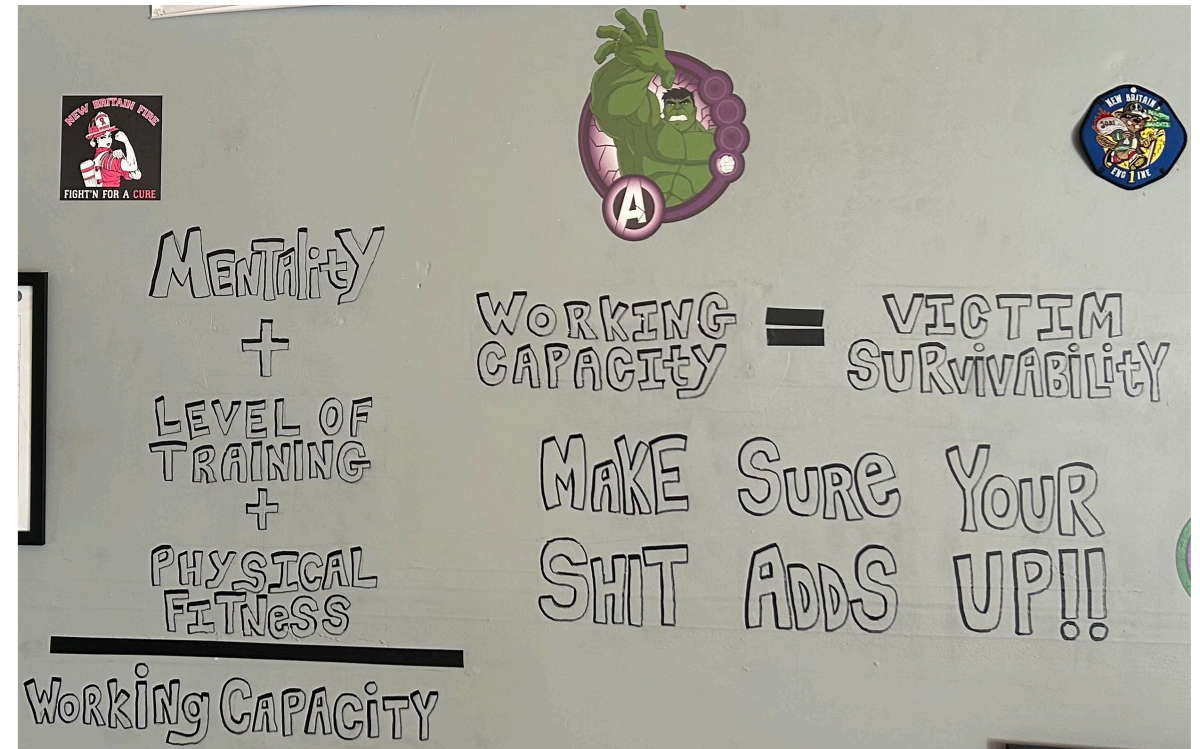 NEW BRITAIN FIRE
FIGHT'N FOR A CURE
A
NEW BRITAIN
ENG 1 INE
MENTAlitY
+
LEVEL OF
TRAINING
+
PHYSICAL
FITNeSS
WORKiNg CAPACiTY
WORKING
CAPACItY
=
VICTIM
SURvivABiLitY
MAKE SURe YOUR
SHIT ADDS UP!!